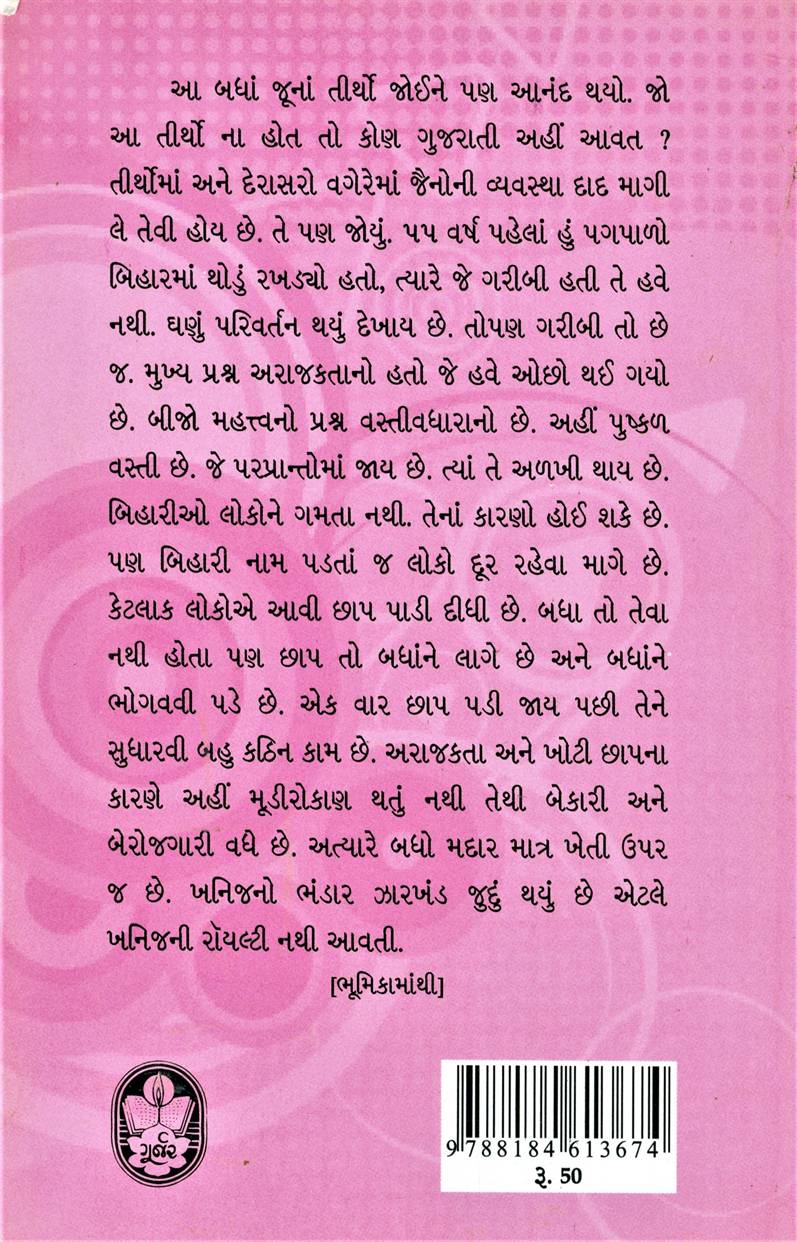 આ બધાં જૂનાં તીર્થો જોઈને પણ આનંદ થયો. જો
આ તીર્થો ના હોત તો કોણ ગુજરાતી અહીં આવત ?
તીર્થોમાં અને દેરાસરો વગેરેમાં જૈનોની વ્યવસ્થા દાદ માગી
લે તેવી હોય છે. તે પણ જોયું. ૫૫ વર્ષ પહેલાં હું પગપાળો
બિહારમાં થોડું રખડ્યો હતો, ત્યારે જે ગરીબી હતી તે હવે
નથી. ઘણું પરિવર્તન થયું દેખાય છે. તોપણ ગરીબી તો છે
જ. મુખ્ય પ્રશ્ન અરાજકતાનો હતો જે હવે ઓછો થઈ ગયો
છે. બીજો મહત્ત્વનો પ્રશ્ન વસ્તીવધારાનો છે. અહીં પુષ્કળ
વસ્તી છે. જે પરપ્રાન્તોમાં જાય છે. ત્યાં તે અળખી થાય છે.
બિહારીઓ લોકોને ગમતા નથી. તેનાં કારણો હોઈ શકે છે.
પણ બિહારી નામ પડતાં જ લોકો દૂર રહેવા માગે છે.
કેટલાક લોકોએ આવી છાપ પાડી દીધી છે. બધા તો તેવા
નથી હોતા પણ છાપ તો બધાંને લાગે છે અને બધાંને
ભોગવવી પડે છે. એક વાર છાપ પડી જાય પછી તેને
સુધારવી બહુ કઠિન કામ છે. અરાજકતા અને ખોટી છાપના
કારણે અહીં મૂડીરોકાણ થતું નથી તેથી બેકારી અને
બેરોજગારી વધે છે. અત્યારે બધો મદાર માત્ર ખેતી ઉપર
જ છે. ખનિજનો ભંડાર ઝારખંડ જુદું થયું છે એટલે
ખનિજની રૉયલ્ટી નથી આવતી.
[ભૂમિકામાંથી]
ગૂર્જર
9 788184 613674
રૂ. 50